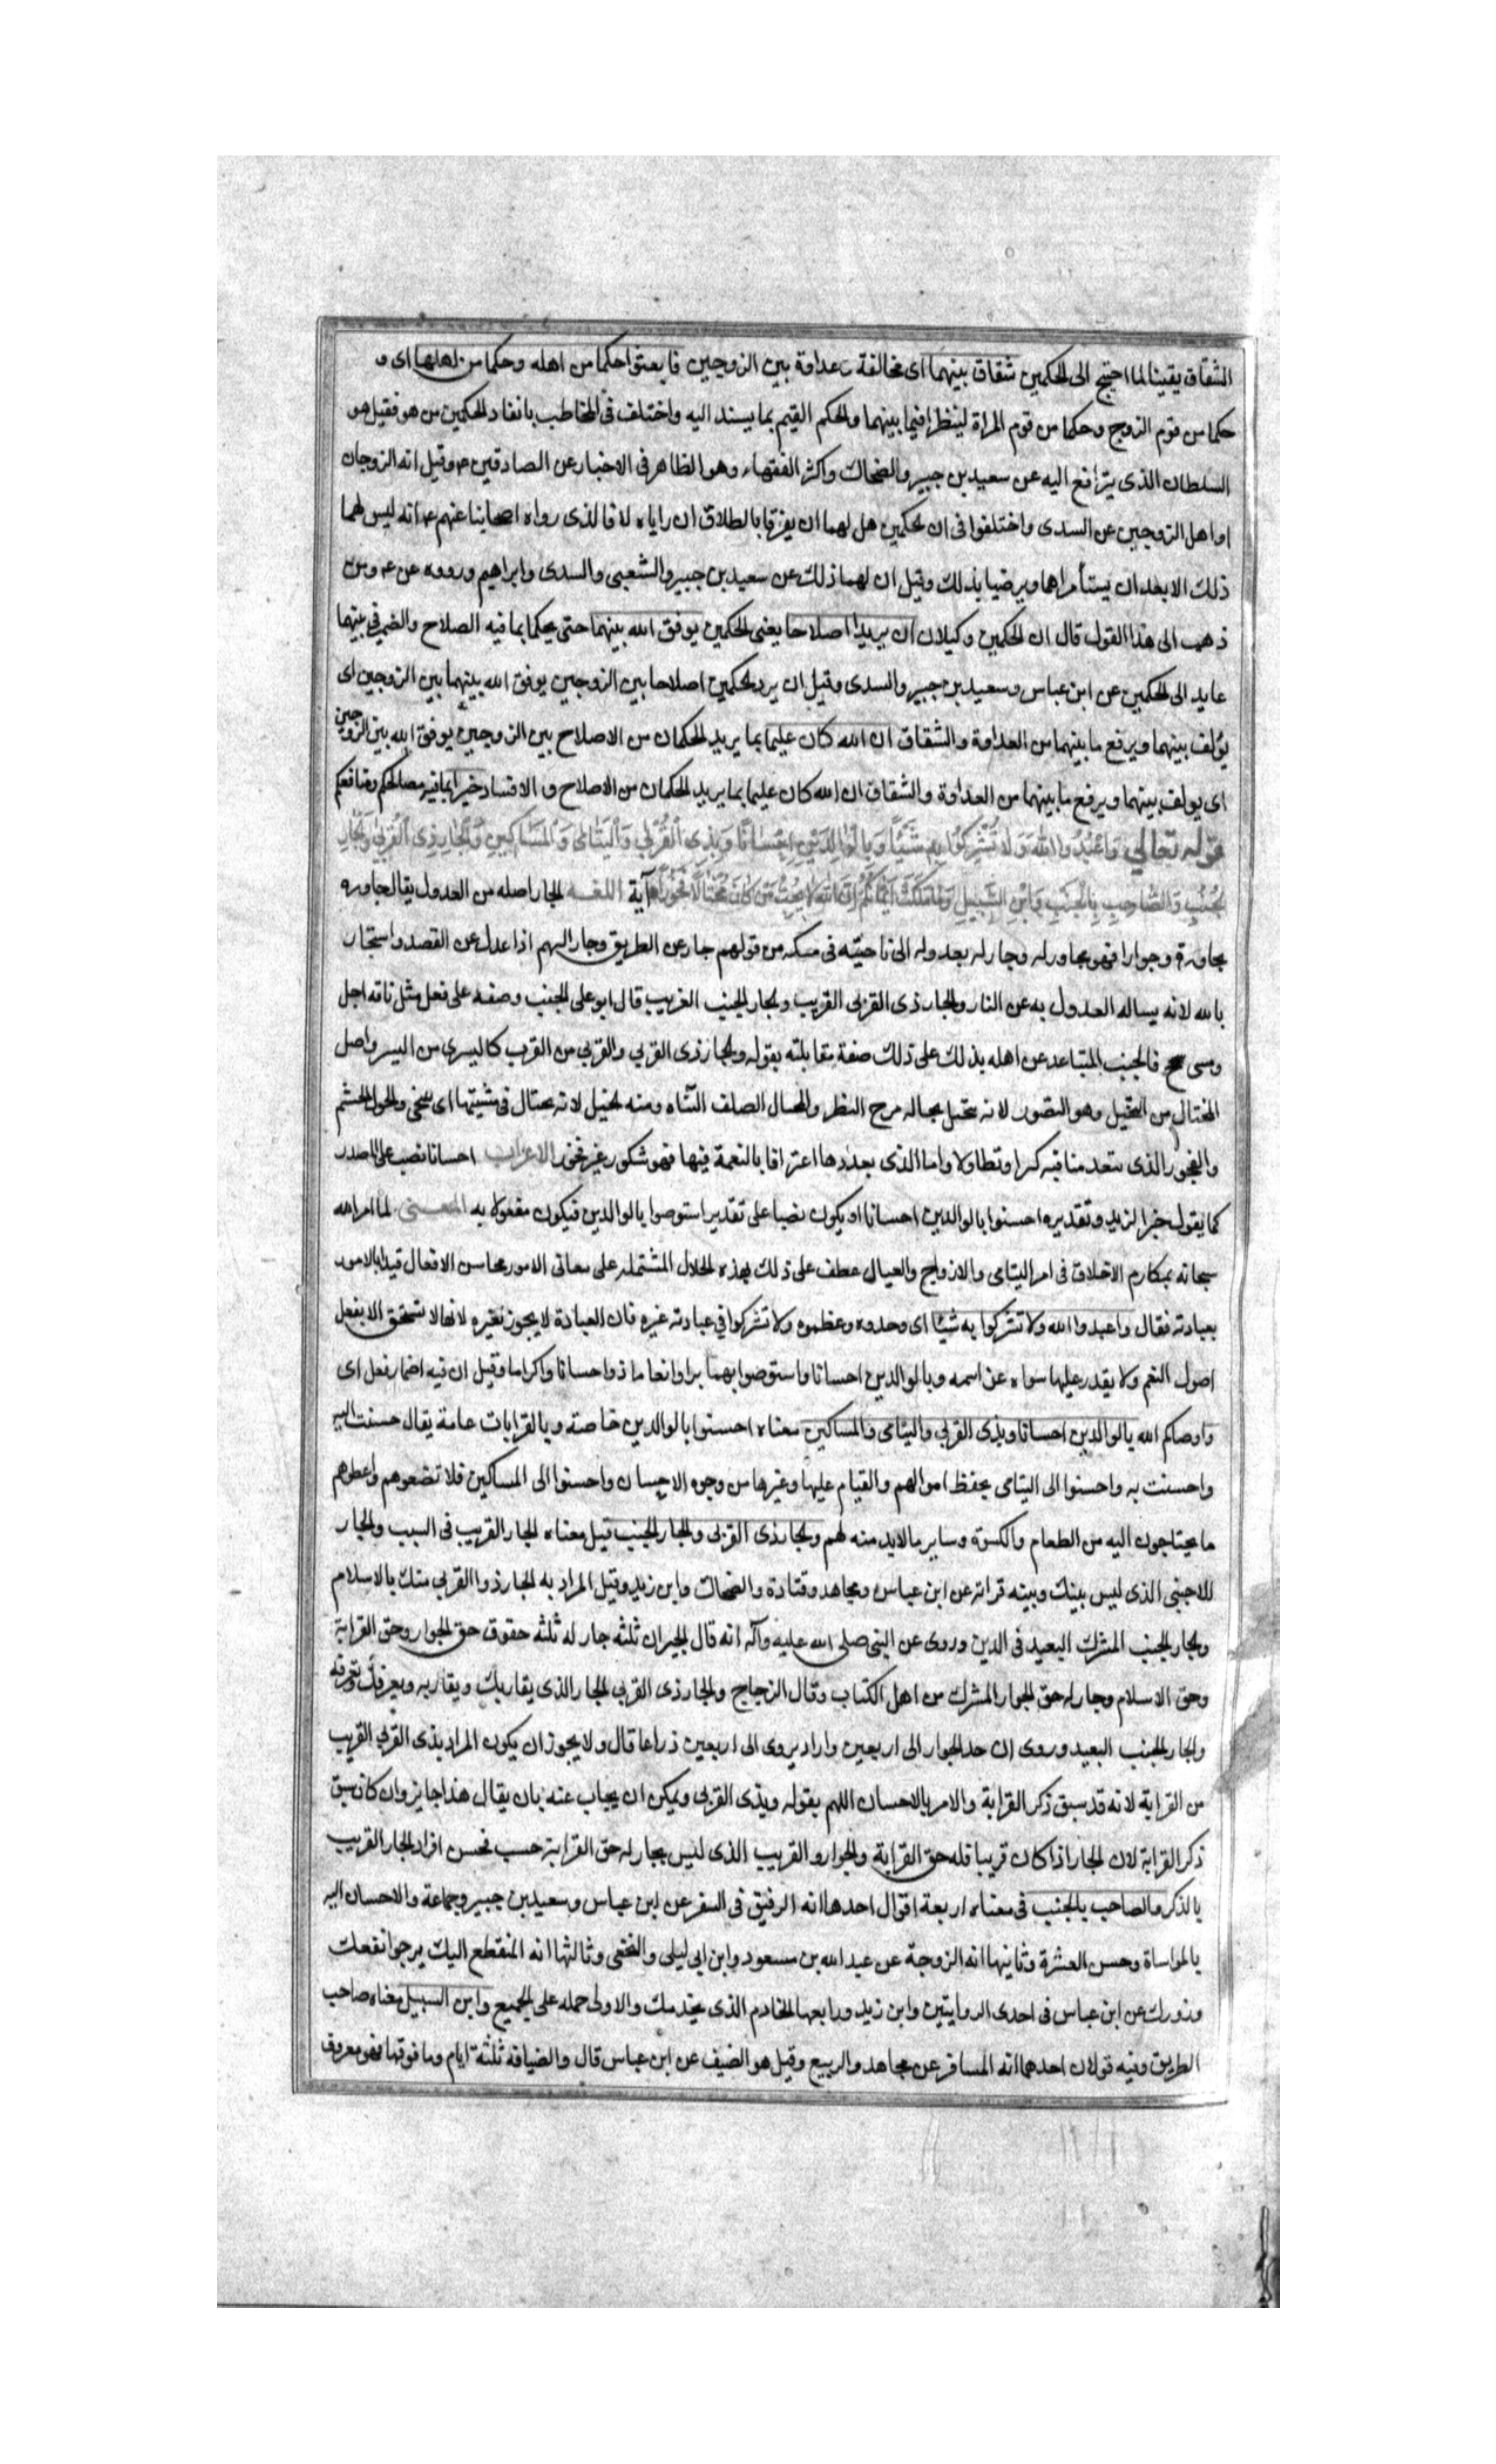 الشقاق يقينا لما احتيج الى الحكمين شقاق بينهما اى مخالفة و عداوة بين الزوجين فابعثوا حكما من اهله وحكما من اهلها اى و
حكما من قوم الزوج وحكما من قوم المراة لينظرا فيما بينهما والحكم القيم بما يسند اليه واختلف فى المخاطب بانفاد الحكمين من هو فقيل هو
السلطان الذى يترافع اليه عن سعيد بن جبير والضحاك واكثر الفقهاء وهو الظاهر فى الاخبار عن الصادقين ع وقيل انه الزوجان
او اهل الزوجين عن السدى واختلفوا فى ان الحكمين هل لهما ان يفرقا بالطلاق ان راياه لا فالذى رواه اصحابنا عنهم ع انه ليس لهما
ذلك الا بعد ان يستأمراهما ويرضيا بذلك وقيل ان لهما ذلك عن سعيد بن جبير والشعبى والسدى وابراهيم ورووه عن ع ومن
ذهب الى هذا القول قال ان الحكمين وكيلان ان يريدا اصلاحا يعنى الحكمين يوفق الله بينهما حتى يحكما بما فيه الصلاح والضمير فى بينهما
عايد الى الحكمين عن ابن عباس وسعيد بن جبير والسدى وقيل ان يرد الحكمين اصلاحا بين الزوجين يوفق الله بينهما بين الزوجين اى
يؤلف بينهما ويرفع ما بينهما من العداوة والشقاق ان الله كان عليما بما يريد الحكمان من الاصلاح بين الزوجين يوفق الله بين الزوجين
اى يولف بينهما ويرفع ما بينهما من العداوة والشقاق ان الله كان عليما بما يريد الحكمان من الاصلاح و الافساد خبيرا بما فيه مصالحكم ومنافعكم
قوله تعالى وَاعْبُدُوا اللهَ وَلَا تُشْرِكُوا بِهِ شَيْئًا وَبِالْوَالِدَيْنِ اِحْسَانًا وَبِذِى الْقُرْبَى وَالْيَتَامَى وَالْمَسَاكِينِ وَالْجَارِ ذِى الْقُرْبَى وَالْجَارِ
الْجُنُبِ وَالصَّاحِبِ بِالْجَنْبِ وَابْنِ السَّبِيلِ وَمَا مَلَكَتْ اَيْمَانُكُمْ اِنَّ اللهَ لَا يُحِبُّ مَنْ كَانَ مُخْتَالًا فَخُورًا آية اللغة الجار اصله من العدول يقال جاوره
مجاورة وجوارا فهو مجاور له وجار له بعدوله الى ناحيته فى مسكنه من قولهم جار عن الطريق وجار السهم اذا عدل عن القصد واستجار
بالله لانه يساله العدول به عن النار والجار ذى القربى القريب والجار الجنب الغريب قال ابو على الجنب وصفه على فعل مثل ناقه اجل
ومسى سجح فالجنب المتباعد عن اهله يذلك على ذلك صفة مقابلته بقوله والجار ذى القربى والقربى من القرب كاليسرى من اليسر واصل
المختال من التخيل وهو التصور لانه يتخيل بحاله مرح البطر والخال الصلف التياه ومنه الخيل لانه يختال فى مشيتها اى يتبختر والخول الحشم
والفخور الذى يعدد مناقبه كبرا وتطاولا واما الذى يعددها اعترافا بالنعمة فيها فهو شكور غير فخور الاعراب احسانا نصب على المصدر
كما يقول ضربا لزيد وتقديره احسنوا بالوالدين احسانا او يكون نصبا على تقدير استوصوا بالوالدين فيكون مفعولا به المعنى لما امر الله
سبحانه بمكارم الاخلاق فى امر اليتامى والازواج والعيال عطف على ذلك بهذه الخلال المشتمله على معانى الامور محاسن الافعال فبدا بالامور
بعبادته فقال واعبدوا الله ولا تشركوا به شيئا اى وحدوه وعظموه ولا تشركوا فى عبادته غيره فان العبادة لا يجوز لغيره لانها لا تستحق الا بفعل
اصول النعم ولا يقدر عليها سواه عز اسمه وبالوالدين احسانا واستوصوا بهما برا وانعاما ذوا احسانا واكراما وقيل ان فيه اضمار فعل اى
واوصاكم الله بالوالدين احسانا وبذى القربى واليتامى والمساكين معناه احسنوا بالوالدين خاصة وبالقرابات عامة يقال حسنت اليه
واحسنت به واحسنوا الى اليتامى بحفظ اموالهم والقيام عليها وغيرها من وجوه الاحسان واحسنوا الى المساكين فلا تضيعوهم واعطوهم
ما يحتاجون اليه من الطعام والكسوة وساير ما لابد منه لهم والجار ذى القربى والجار الجنب قيل معناه الجار القريب فى النسب والجار
للاجنبى الذى ليس بينك وبينه قرابة عن ابن عباس ومجاهد وقتادة والضحاك وابن زيد وقيل المراد به الجار ذوا القربى منك بالاسلام
والجار الجنب المشرك البعيد فى الدين وروى عن النبى صلى الله عليه وآله انه قال الجيران ثلثه جار له ثلثه حقوق حق الجوار وحق القرابة
وحق الاسلام وجار له حق الجوار المشرك من اهل الكتاب وقال الزجاج والجار ذى القربى الجار الذى يقاربك ويقاربه ويعرفك وتعرفه
والجار الجنب البعيد وروى ان حد الجوار الى اربعين وارا ويروى الى اربعين ذراعا قال ولا يجوز ان يكون المراد بذى القربى القريب
من القرابة لانه قد سبق ذكر القرابة والامر بالاحسان اللهم بقوله وبذى القربى ويمكن ان يجاب عنه بان يقال هذا جايز وان كان سبق
ذكر القرابة لان الجار اذا كان قريبا فله حق القرابة والجوار والقريب الذى ليس بجار له حق القرابة حسب فحسن افراد الجار القريب
بالذكر والصاحب بالجنب فى معناه اربعة اقوال احدها انه الرفيق فى السفر عن ابن عباس وسعيد بن جبير وجماعة والاحسان اليه
بالمواساة وحسن العشرة وثانيها انه الزوجة عن عبد الله بن مسعود وابن ابى ليلى والنخعى وثالثها انه المنقطع اليك يرجوا نفعك
ورفدك عن ابن عباس فى احدى الروايتين وابن زيد ورابعها الخادم الذى يخدمك والاولى حمله على الجميع وابن السبيل معناه صاحب
الطريق وفيه قولان احدهما انه المسافر عن مجاهد والربيع وقيل هو الضيف عن ابن عباس قال والضيافة ثلثة ايام وما فوقها فهو معروف